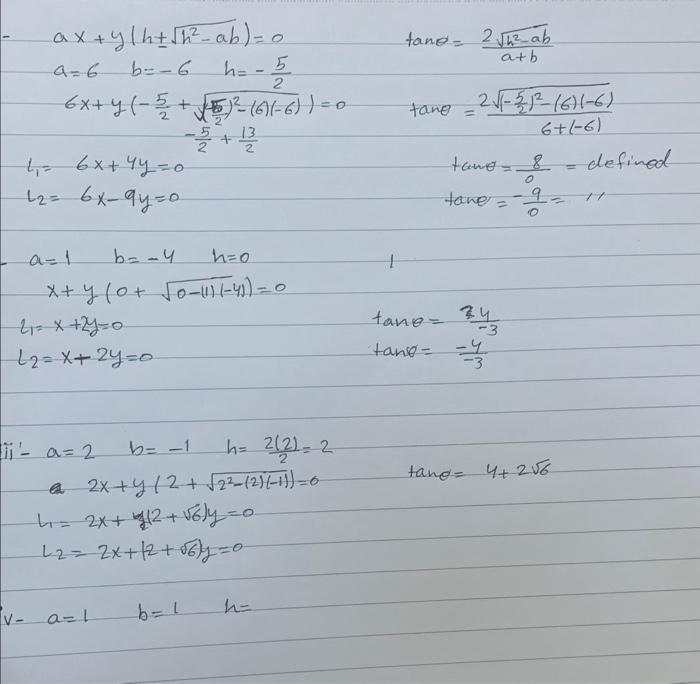 - ax + y(h ± √h² - ab) = 0    tanθ = 2√h² - ab / a+b
a = 6  b = -6  h = -5/2
6x + y(-5/2 + √(-5/2)² - (6)(-6)) = 0    tanθ = 2√(-5/2)² - (6)(-6) / 6+(-6)
-5/2 + 13/2
L₁ = 6x + 4y = 0    tanθ = 8/0 = defined
L₂ = 6x - 9y = 0    tanθ = -9/0 = ''
- a = 1  b = -4  h = 0    1
x + y(0 + √0-(1)(-4)) = 0
L₁ = x + 2y = 0    tanθ = 4/-3
L₂ = x + 2y = 0    tanθ = -4/-3
iii- a = 2  b = -1  h = 2(2)/2 = 2
2x + y(2 + √2²-(2)(-1)) = 0    tanθ = 4 + 2√6
L₁ = 2x + (2 + √6)y = 0
L₂ = 2x + (2 + √6)y = 0
iv- a = 1  b = 1  h =